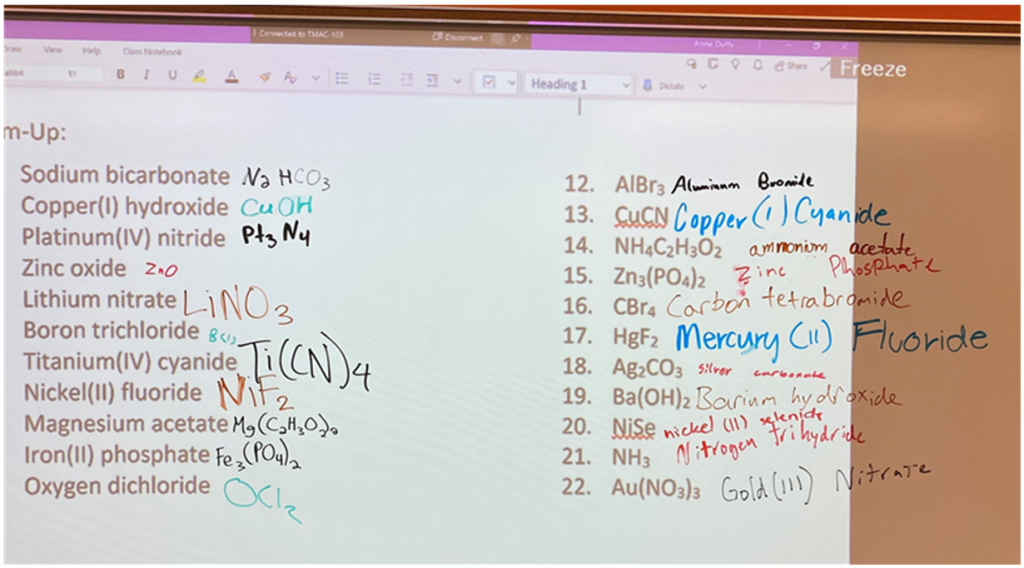 Connected to TMAC-103 Disconnect
Draw View Help Class Notebook Anne Duffy
11 B I U A Heading 1 Dictate Share Freeze
m-Up:
Sodium bicarbonate Na HCO3
Copper(I) hydroxide CuOH
Platinum(IV) nitride Pt3 N4
Zinc oxide ZnO
Lithium nitrate LiNO3
Boron trichloride BCl3
Titanium(IV) cyanide Ti(CN)4
Nickel(II) fluoride NiF2
Magnesium acetate Mg(C2H3O2)2
Iron(II) phosphate Fe3(PO4)2
Oxygen dichloride OCl2
12. AlBr3 Aluminum Bromide
13. CuCN Copper (I) Cyanide
14. NH4C2H3O2 ammonium acetate
15. Zn3(PO4)2 Zinc Phosphate
16. CBr4 Carbon tetrabromide
17. HgF2 Mercury (II) Fluoride
18. Ag2CO3 silver carbonate
19. Ba(OH)2 Barium hydroxide
20. NiSe nickel (II) selenide
21. NH3 Nitrogen trihydride
22. Au(NO3)3 Gold (III) Nitrate